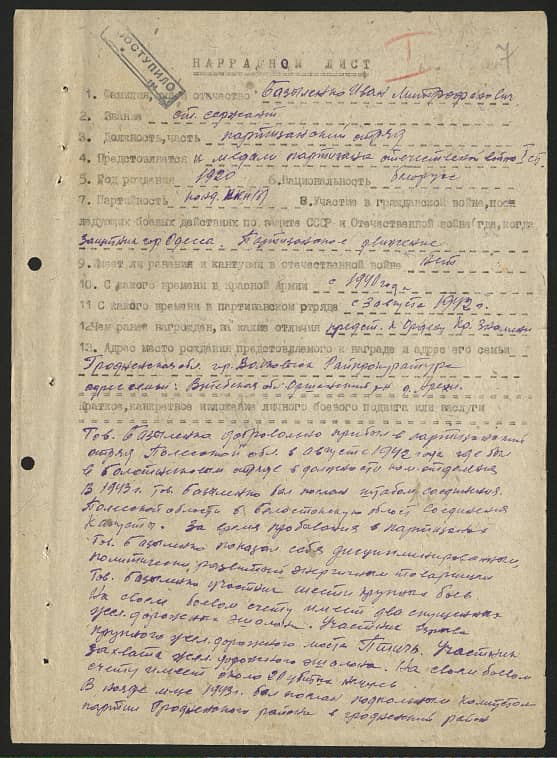 ПОСТУПИЛО
I
7
НАГРАДНОЙ ЛИСТ
1. Фамилия, имя, отчество Базыленко Иван Митрофанович
2. Звание ст. сержант
3. Должность, часть партизанский отряд
4. Представляется к медали партизана отечественной войны I ст.
5. Род рождения 1920 6. Национальность белорус
7. Партийность канд. ВКП(б) 8. Участие в гражданской война, пос
ледующих боевых действиях по защите СССР и Отечественной война (где, когда
Защитник гор. Одесса. Партизанское движение
9. Имеет ли ранения и кантузии в отечественной войне нет
10. С какого времени в Красной Армии с 1940 год.
11 С какого времени в партизанском отряде с 3 августа 1942 г.
12. Чем ранее награжден, за какие отличия предст. к Ордену Кр. Знамени
13. Адрес место рождения представляемого к награде и адрес его семьи
Гродненская обл. гр. Волковыск Райпрокуратура
адрес семьи: Витебская об. Оршанский р-н
Краткое, канкретное изложение личного боевого подвига или заслуги
Тов. Базыленко добровольно прибыл в партизанский
отряд Полесской обл. в августе 1942 года где был
в отряде в должности ком. отделения
В 1943 г. тов. Базыленко был послан штабом соединения
Полесской области в Белостокскую область Соединения
Капусты. За время пребывания в партизанах
Тов. Базыленко показал себя дисциплинированным,
политически развитый энергичным товарищем
Тов. Базыленко участник шести крупных боев
На своем боевом счету имеет два спущенных
жел. дорожных эшалона. Участник взрыва
крупного жел. дорожного моста Птичь. Участник
захвата жел. дорожного эшалона. На своем боевом
счету имеет около 20 убитых
В 1943 г. был послан подпольным комитетом
партии Гродненского района в гродненский район